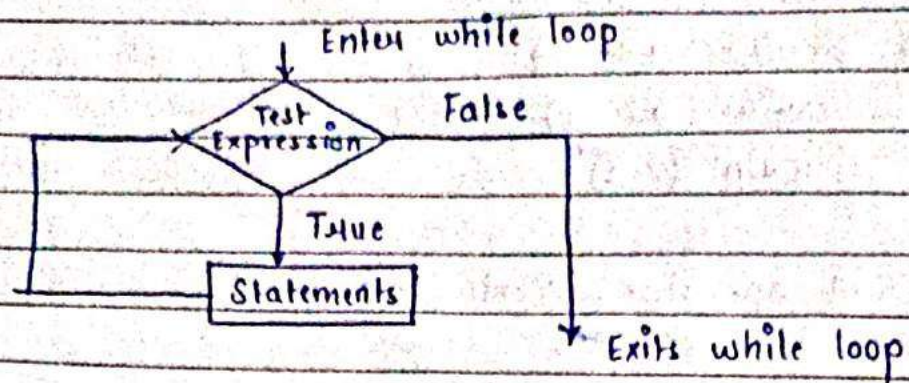 Enter while loop
Test
Expression
False
True
Statements
Exits while loop